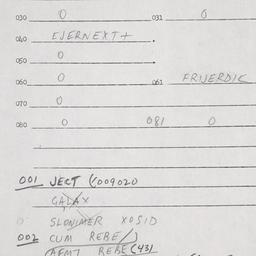 030 0 031 0
040 EJERNEXT+
050 0
060 0 061 FRIJERDIC
070 0
080 0 081 0
001 JECT (009020
GALAX
SLONIMER XOSID
002 CUM REBE/)
AFMT REBE (43)